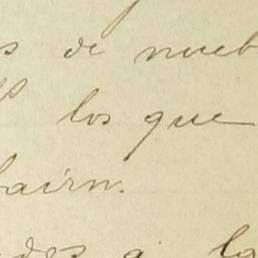 s de mueb
los que
bairn.
des a la